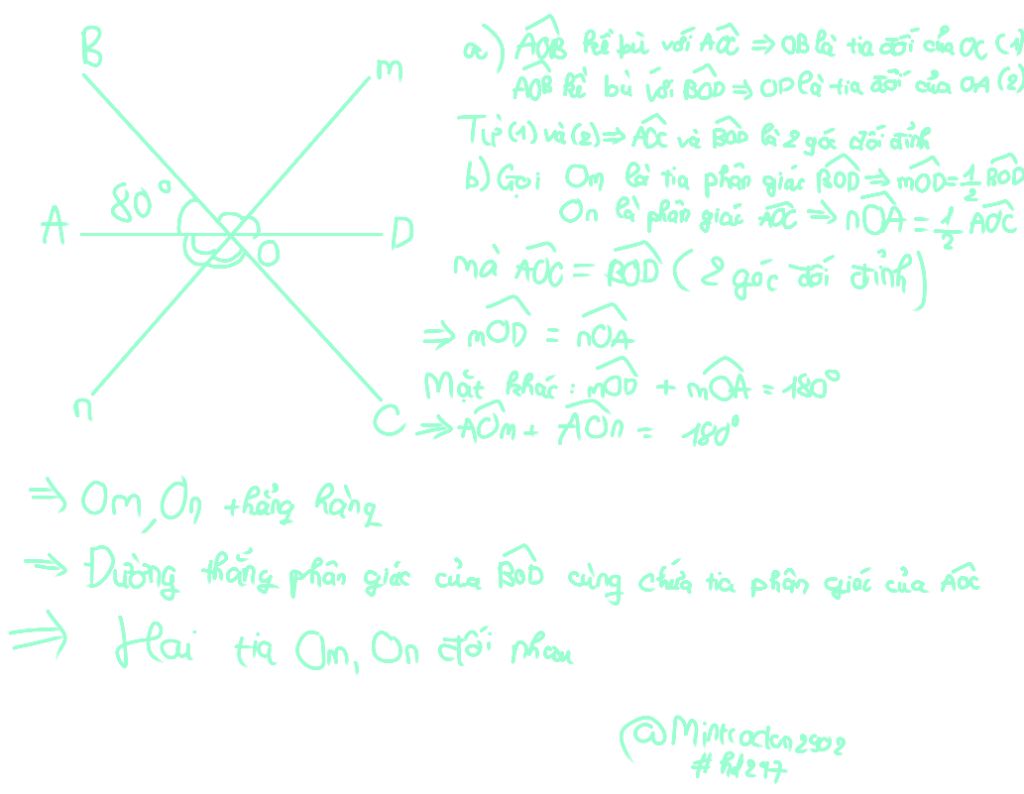 B
m
80°
A
D
O
n
C
a) AOB kề bù với AOC => OB là tia đối của OC (1)
AOB kề bù với BOD => OD là tia đối của OA (2)
Từ (1) và (2) => AOC và BOD là 2 góc đối đỉnh
b) Gọi Om là tia phân giác BOD => mOD = 1/2 BOD
On là phân giác AOC => nOA = 1/2 AOC
mà AOC = BOD (2 góc đối đỉnh)
=> mOD = nOA
Mặt khác: mOD + mOA = 180°
=> AOm + AOn = 180°
=> Om, On thẳng hàng
=> Đường thẳng phân giác của BOD cùng chứa tia phân giác của AOC
=> Hai tia Om, On đối nhau